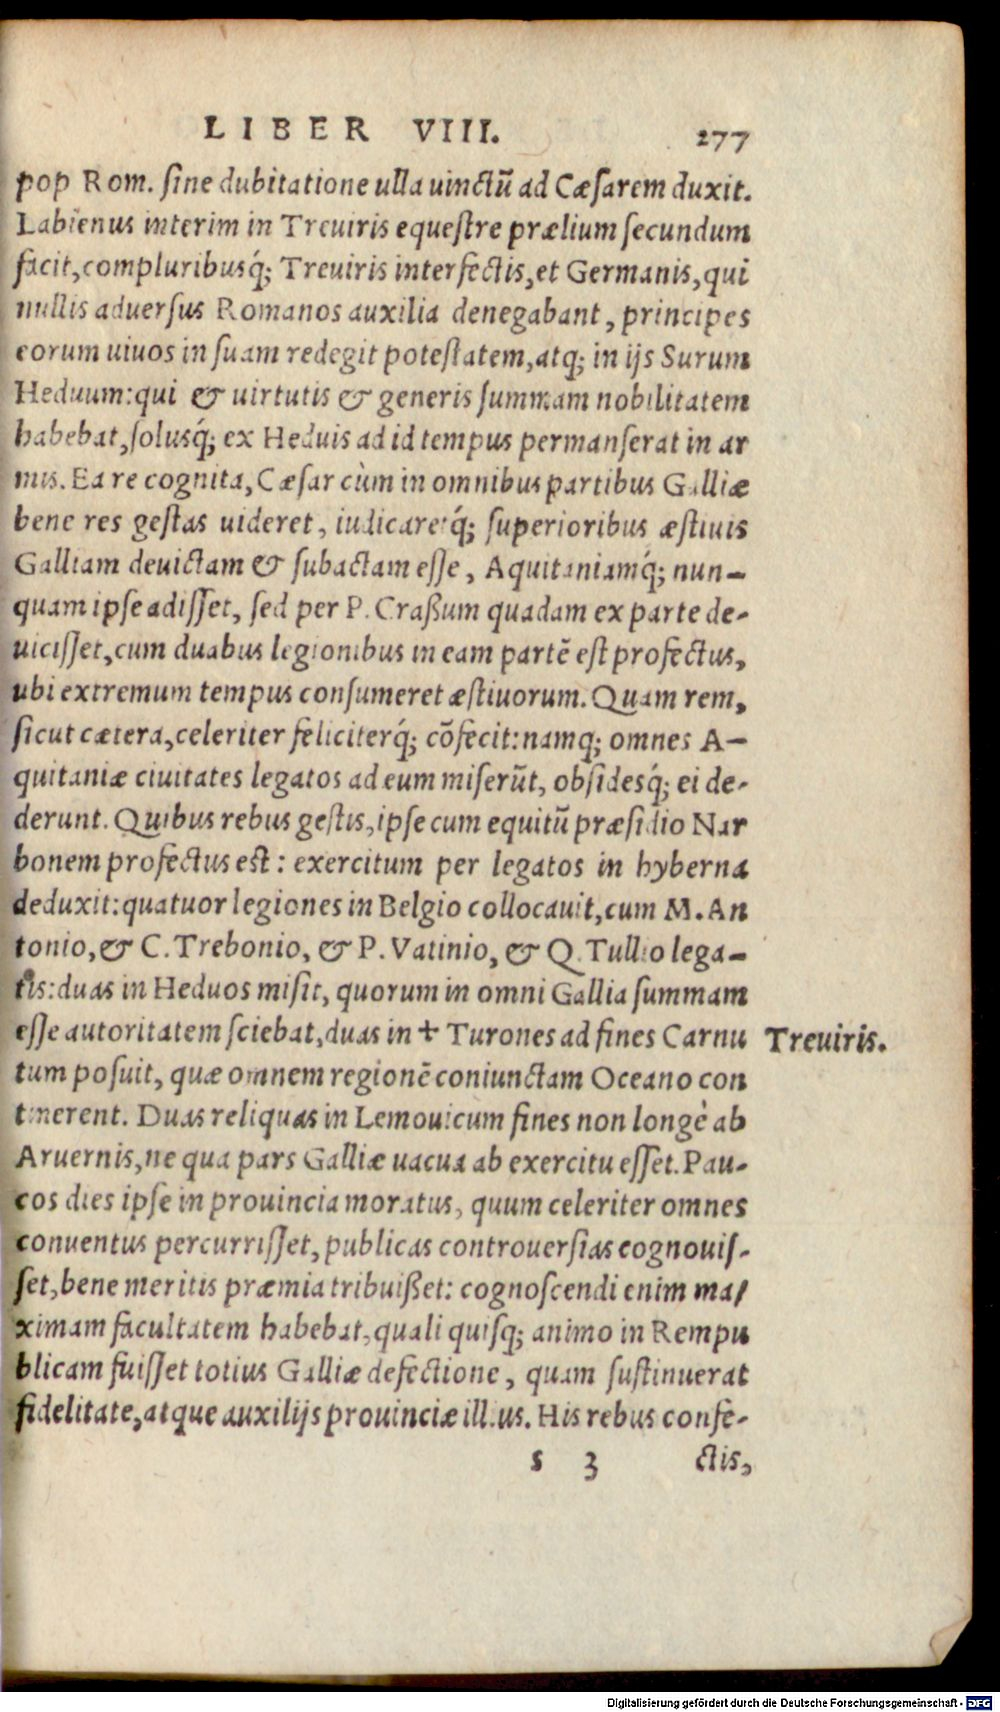 LIBER VIII. 277
pop Rom. sine dubitatione ulla uinctũ ad Cæsarem duxit.
Labienus interim in Treuiris equestre prælium secundum
facit, compluribusq́; Treuiris interfectis, et Germanis, qui
nullis aduersus Romanos auxilia denegabant, principes
eorum uiuos in suam redegit potestatem, atq; in ijs Surum
Heduum: qui & uirtutis & generis summam nobilitatem
habebat, solusq́; ex Heduis ad id tempus permanserat in ar
mis. Ea re cognita, Cæsar cùm in omnibus partibus Galliæ
bene res gestas uideret, iudicaretq́; superioribus æstiuis
Galliam deuictam & subactam esse, Aquitaniamq́; nun-
quam ipse adisset, sed per P. Craßum quadam ex parte de-
uicisset, cum duabus legionibus in eam partẽ est profectus,
ubi extremum tempus consumeret æstiuorum. Quam rem,
sicut cætera, celeriter feliciterq́; cõfecit: namq; omnes A-
quitaniæ ciuitates legatos ad eum miserũt, obsidesq́; ei de-
derunt. Quibus rebus gestis, ipse cum equitũ præsidio Nar
bonem profectus est: exercitum per legatos in hyberna
deduxit: quatuor legiones in Belgio collocauit, cum M. An
tonio, & C. Trebonio, & P. Vatinio, & Q. Tullio lega-
tis: duas in Heduos misit, quorum in omni Gallia summam
esse autoritatem sciebat, duas in + Turones ad fines Carnu
Treuiris.
tum posuit, quæ omnem regionẽ coniunctam Oceano con
tinerent. Duas reliquas in Lemouicum fines non longè ab
Aruernis, ne qua pars Galliæ uacua ab exercitu esset. Pau-
cos dies ipse in prouincia moratus, quum celeriter omnes
conuentus percurrisset, publicas controuersias cognouis-
set, bene meritis præmia tribuißet: cognoscendi enim ma/
ximam facultatem habebat, quali quisq; animo in Rempu
blicam fuisset totius Galliæ defectione, quam sustinuerat
fidelitate, atque auxilijs prouinciæ illius. His rebus confe-
s 3 ctis,
Digitalisierung gefördert durch die Deutsche Forschungsgemeinschaft - DFG